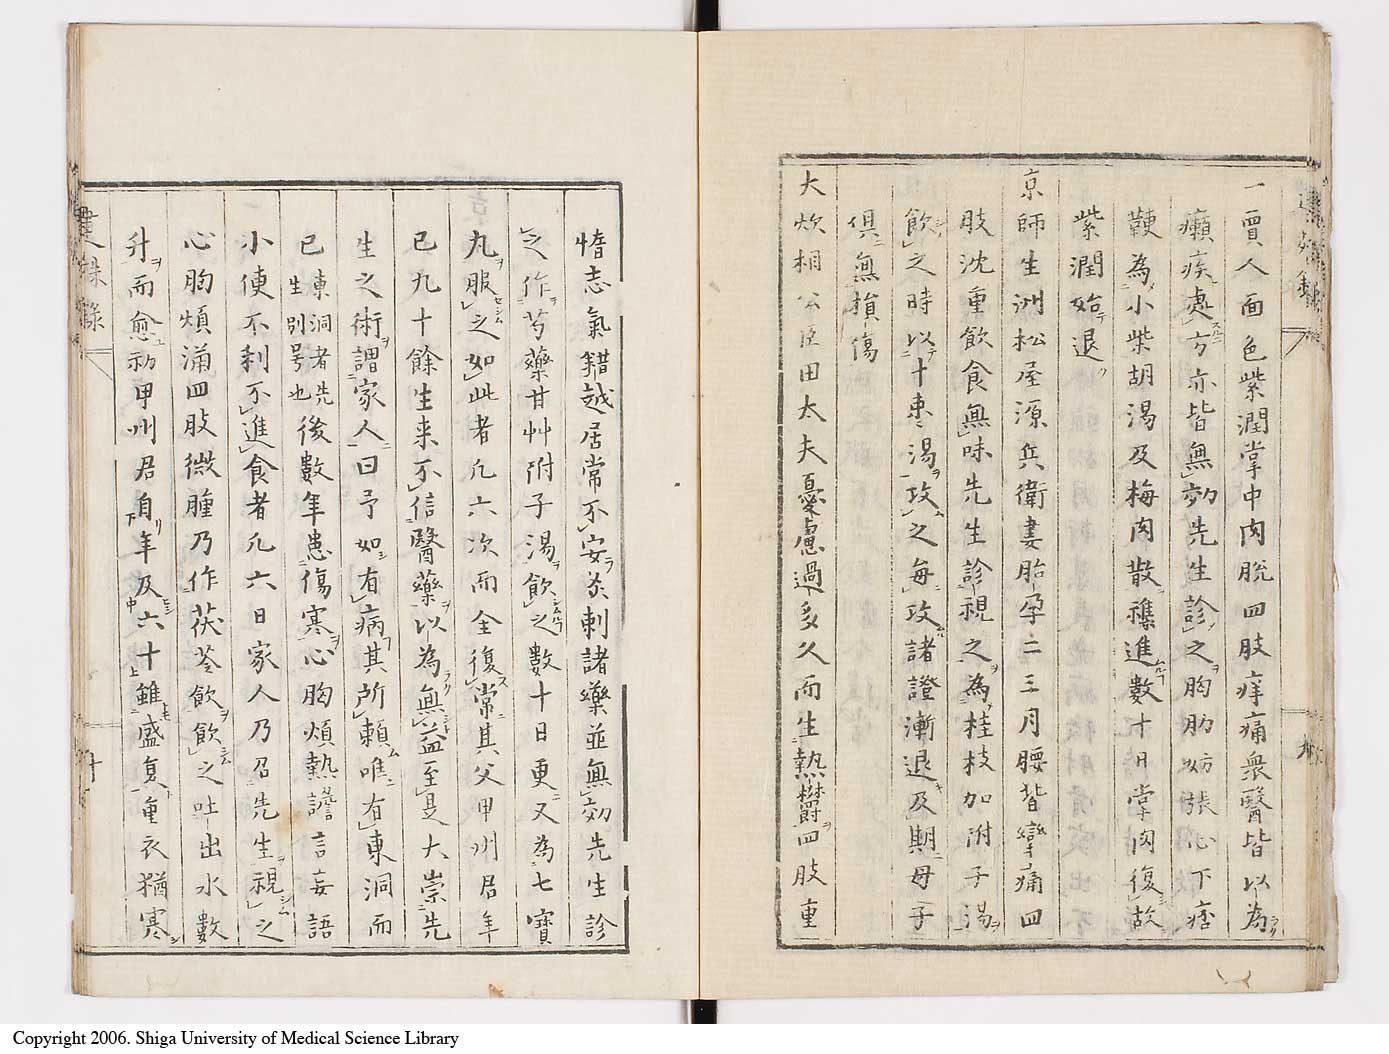 一賈人面色紫潤掌中肉脫四肢痒痛衆醫皆以為
癩疾處方亦皆無効先生診之胸肋妨脹心下痞
鞕為小柴胡湯及梅肉散襍進數十日掌肉復故
紫潤始退
京師生洲松屋源兵衛妻胎孕二三月腰背攣痛四
肢沈重飲食無味先生診視之為桂枝加附子湯
飲之時以十棗湯攻之每攻諸證漸退及期母子
俱無損傷
大炊相公臣田太夫憂慮過多久而生熱欝四肢重
惰志氣錯越居常不安灸刺諸藥並無効先生診
之作芍藥甘艸附子湯飲之數十日更又為七寶
丸服之如此者凡六次而全復常其父甲州君年
已九十餘生来不信醫藥以為無益至是大崇先
生之術謂家人曰予如有病其所賴唯有東洞而
已東洞者先生別号也後數年患傷寒心胸煩熱譫言妄語
小便不利不進食者凡六日家人乃召先生視之
心胸煩滿四肢微腫乃作茯苓飲飲之吐出水數
升而愈初甲州君自年及六十雖盛夏重衣猶寒
建殊錄
十
Copyright 2006. Shiga University of Medical Science Library